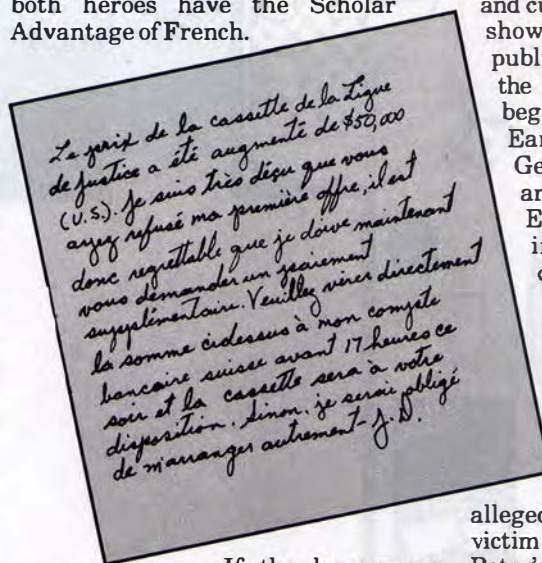 both heroes have the Scholar
Advantage of French.
Le prix de la cassette de la Ligue
de Justice a été augmenté de $50,000
(U.S.). Je suis très déçu que vous
ayez refusé ma première offre, il est
donc regrettable que je doive maintenant
vous demander un paiement
supplémentaire. Veuillez virer directement
la somme cidessus à mon compte
bancaire suisse avant 17 heures ce
soir et la cassette sera à votre
disposition. Sinon, je serai obligé
de m'arranger autrement - J.D.
and
show
publ
the
beg
Ear
Ge
ar
E
in
alleged
victim